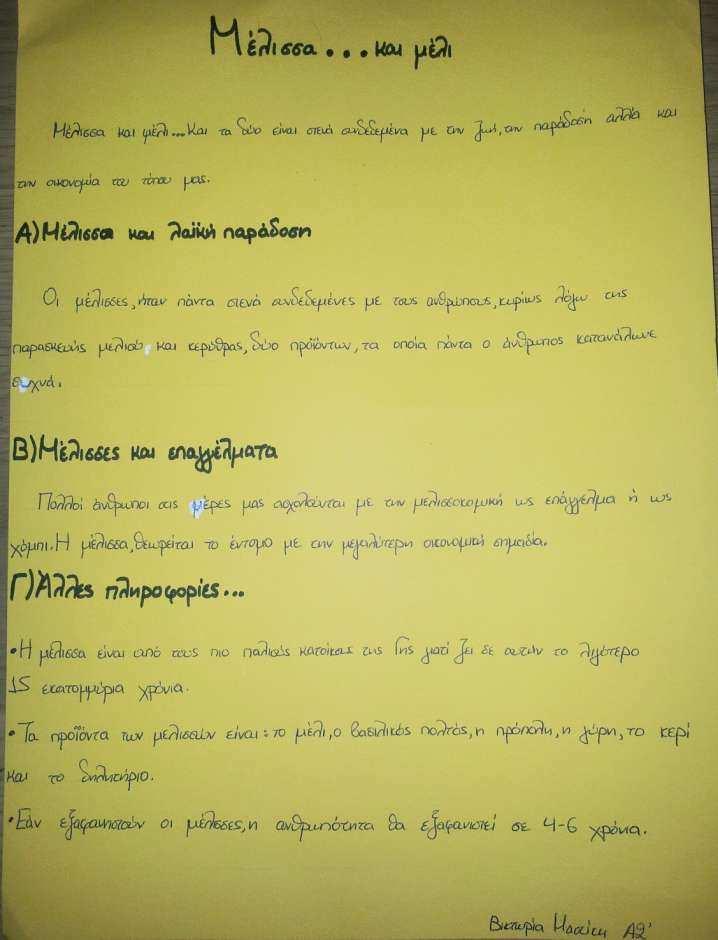 Μέλισσα...και μέλι
Μέλισσα και μέλι...Και τα δύο είναι στενά συνδεδεμένα με την ζωή,την παράδοση αλλά και
την οικονομία του τόπου μας.
Α)Μέλισσα και λαϊκή παράδοση
Οι μέλισσες,ήταν πάντα στενά συνδεδεμένες με τους ανθρώπους,κυρίως λόγω της
παρασκευής μελιού και κερύθρας,δύο προϊόντων,τα οποία πάντα ο άνθρωπος κατανάλωνε
συχνά.
Β)Μέλισσες και επαγγέλματα
Πολλοί άνθρωποι στις μέρες μας ασχολούνται με την μελισσοκομική ως επάγγελμα ή ως
χόμπι.Η μέλισσα,θεωρείται το έντομο με την μεγαλύτερη οικονομική σημασία.
Γ)Άλλες πληροφορίες...
•Η μέλισσα είναι από τους πιο παλιούς κατοίκους της Γης γιατί ζει σε αυτήν το λιγότερο
15 εκατομμύρια χρόνια.
•Τα προϊόντα των μελισσών είναι:το μέλι,ο βασιλικός πολτός,η πρόπολη,η γύρη,το κερί
και το δηλητήριο.
•Εάν εξαφανιστούν οι μέλισσες,η ανθρωπότητα θα εξαφανιστεί σε 4-6 χρόνια.
Βικτωρία Α2'